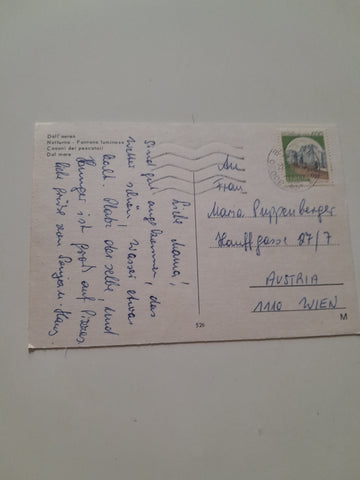 Dall'aereo
Notturno - Fontana luminosa
Casoni dei pescatori
Dal mare
Liebe Mama!
Sind gut angekommen, das
Wetter schön, Wasser etwas
kalt. Platz derselbe, und
Hunger ist groß auf Pizzas
An
Frau
Maria Puppenberger
Hauffgasse 27/7
AUSTRIA
1110 WIEN
526
M